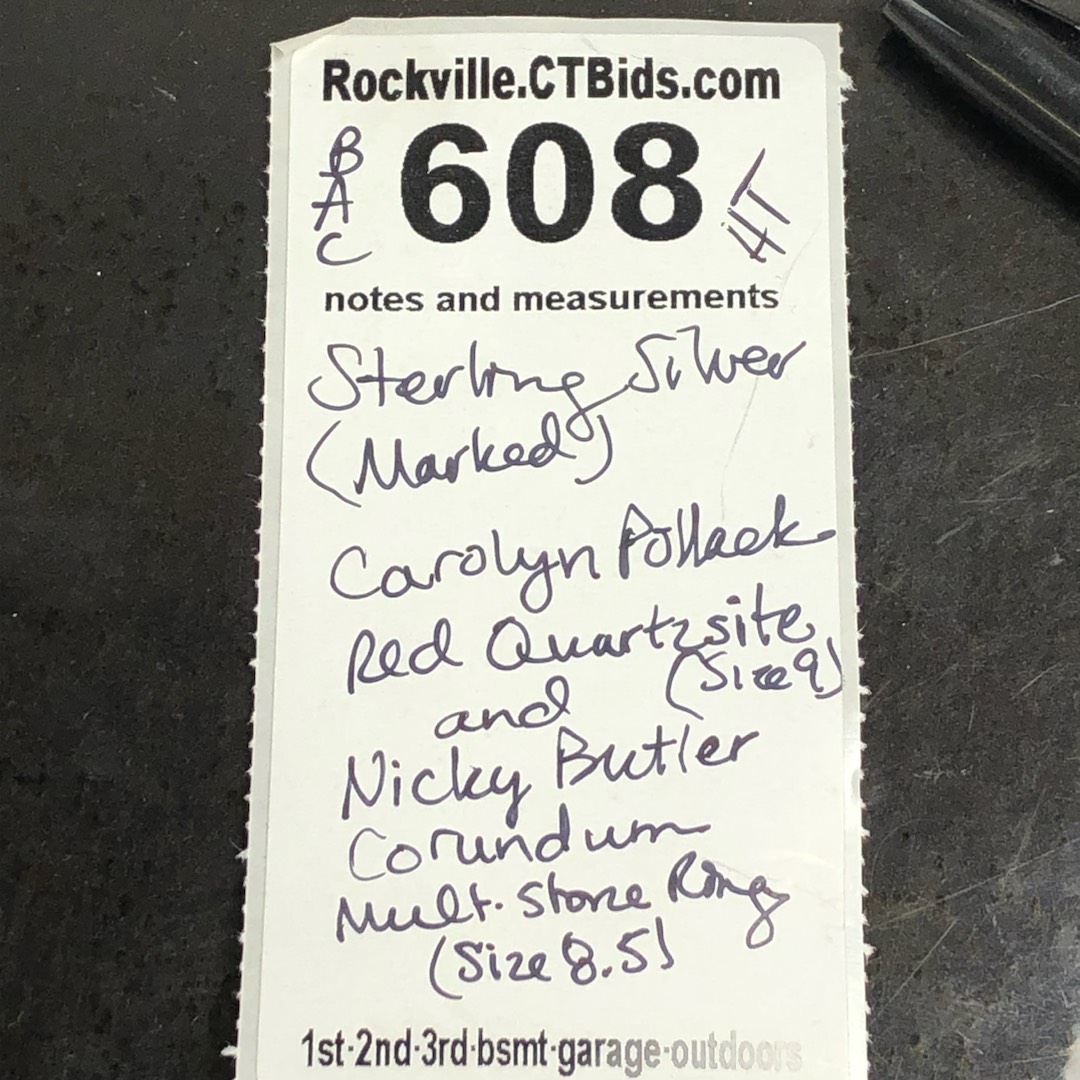 Rockville.CTBids.com
BAC 608 HT
notes and measurements
Sterling Silver
(Marked)
Carolyn Pollack
Red Quartzsite
(Size 9)
and
Nicky Butler
Corundum
Mult. Stone Ring
(Size 8.5)
1st-2nd-3rd-bsmt-garage-outdoors